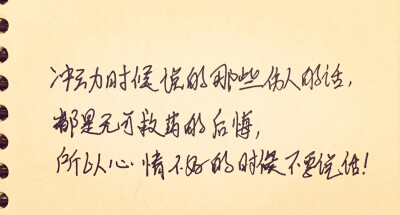 冲动时候说的那些伤人的话，
都是无可救药的后悔，
所以心情不好的时候不要说话！